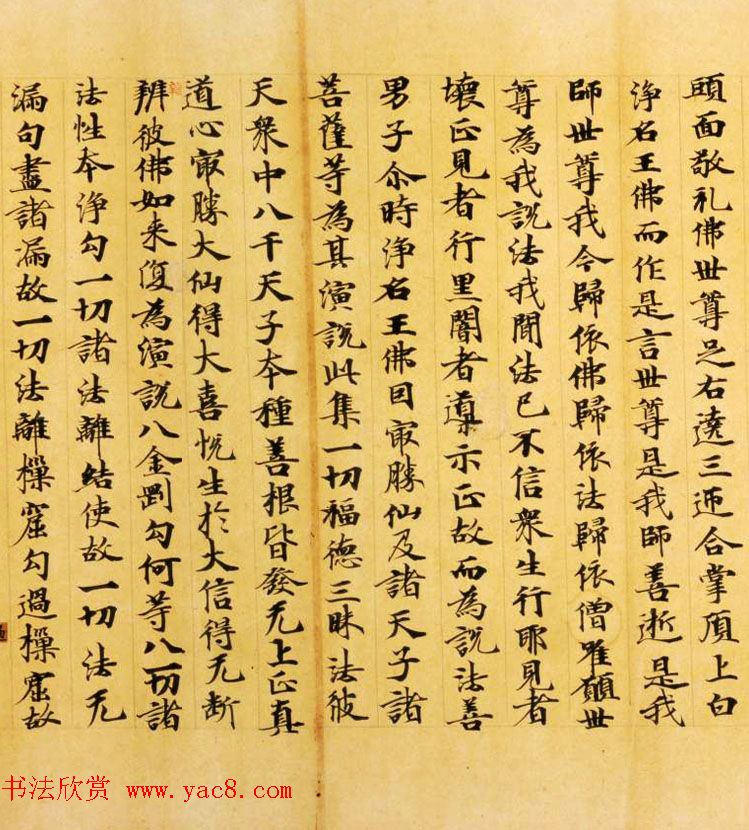 頭面敬礼佛世尊足右遶三迊合掌頂上白
浄名王佛而作是言世尊是我師善逝是我
師世尊我今歸依佛歸依法歸依僧唯願世
尊為我說法我聞法已不信衆生行耶見者
壞正見者行黑闇者導示正故而為說法善
男子尒時浄名王佛因㝡勝仙及諸天子諸
菩薩等為其演說此集一切福德三昧法彼
天衆中八千天子夲種善根皆發无上正真
道心㝡勝大仙得大喜悅生於大信得无断
辨彼佛如来復為演說八金剛勾何等八一切諸
法性夲浄勾一切諸法離結使故一切法无
漏句盡諸漏故一切法離樔窟勾過樔窟故
书法欣赏 www.yac8.com